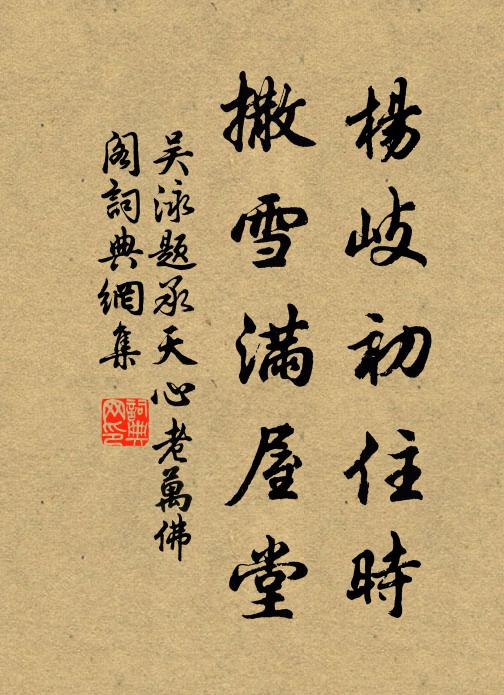 楊岐初住時
撒雪滿屋堂
吴泳題承天心老萬佛
閣詞典網集
詞典
网印